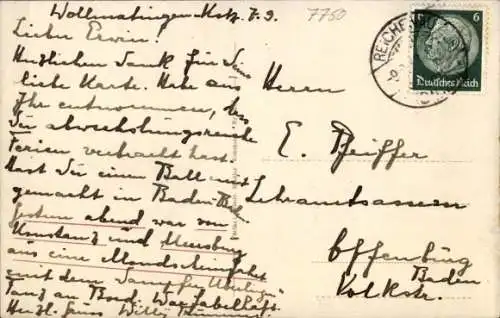 Wollmatingen-Kstz. 7.9.
7750
Lieber Erwin!
Herzlichen Dank für Deine
liebe Karte. Habe aus
Ihr entnommen, dass
Du abwechslungsreiche
Ferien verbracht hast.
Hast Du einen Ball mit-
gemacht in Baden-
Gestern abend war von
Konstanz und Meersburg
aus eine Mondscheinfahrt
mit dem Dampfer
Tanz an Bord. War fabelhaft.
Herzl. Gruss Willi
Herrn
E. Pfeiffer
Lehramtsassessor
Offenburg
Baden
Volkstr.
REICHENAU
6
Deutsches Reich